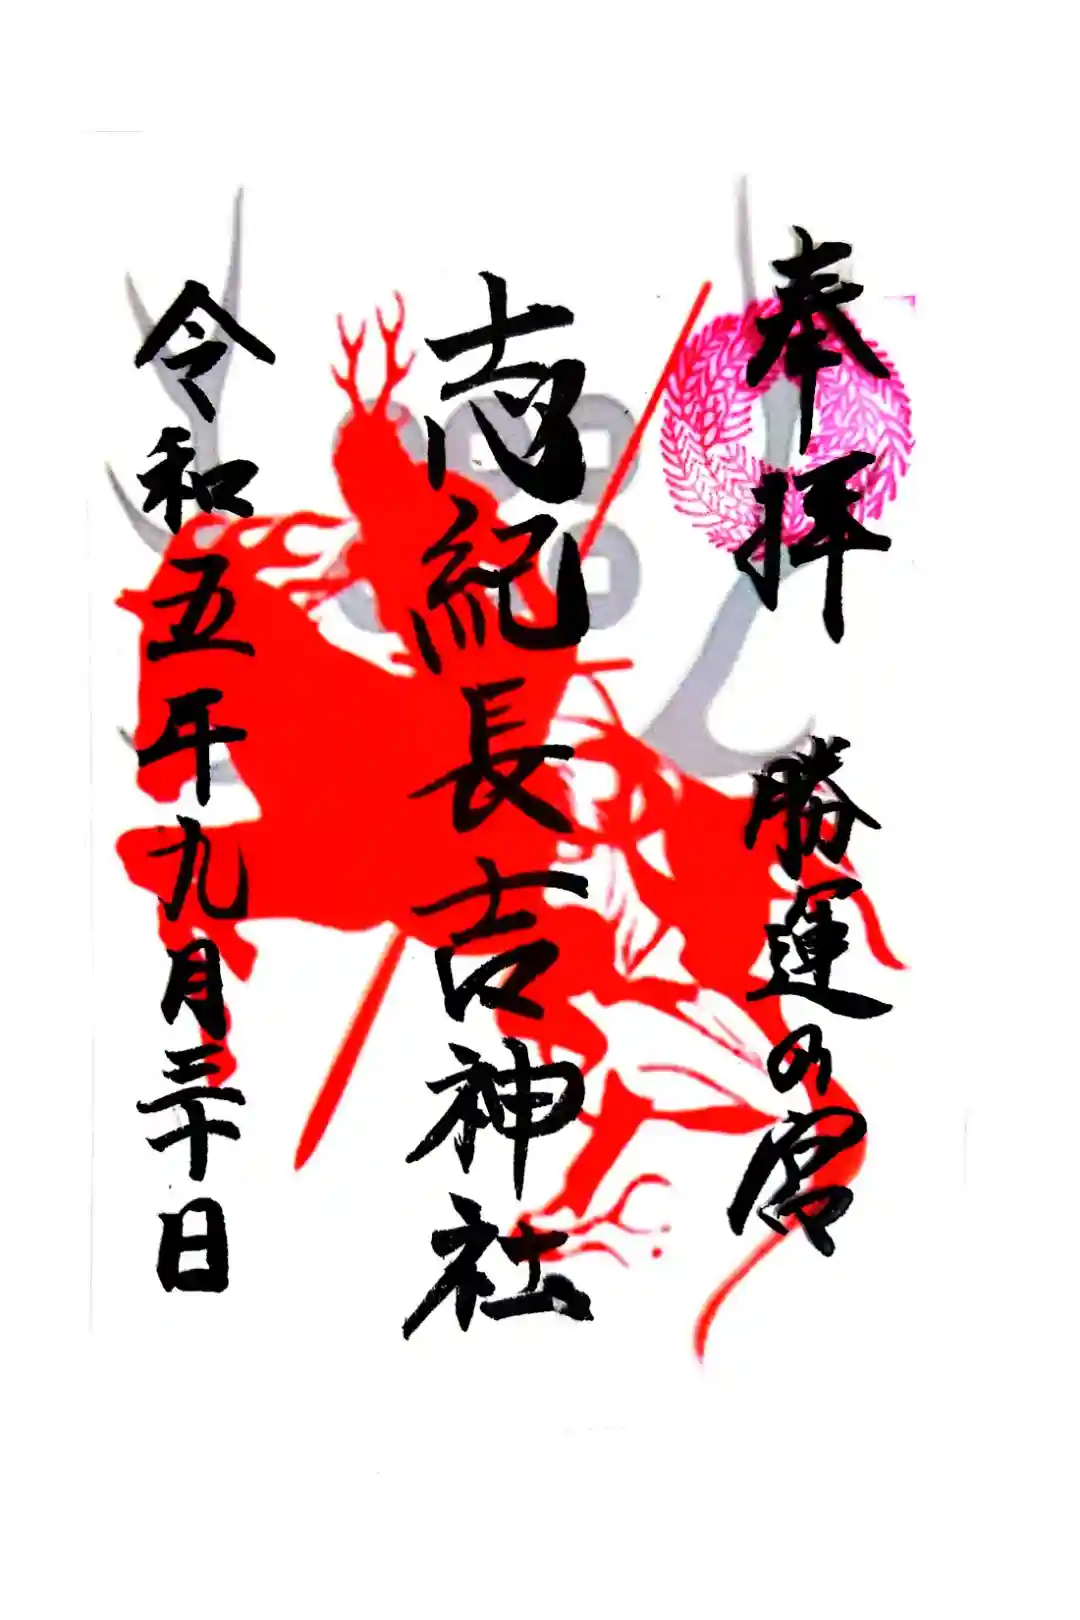 奉拝 勝運の宮
志紀長吉神社
令和五年九月三十日